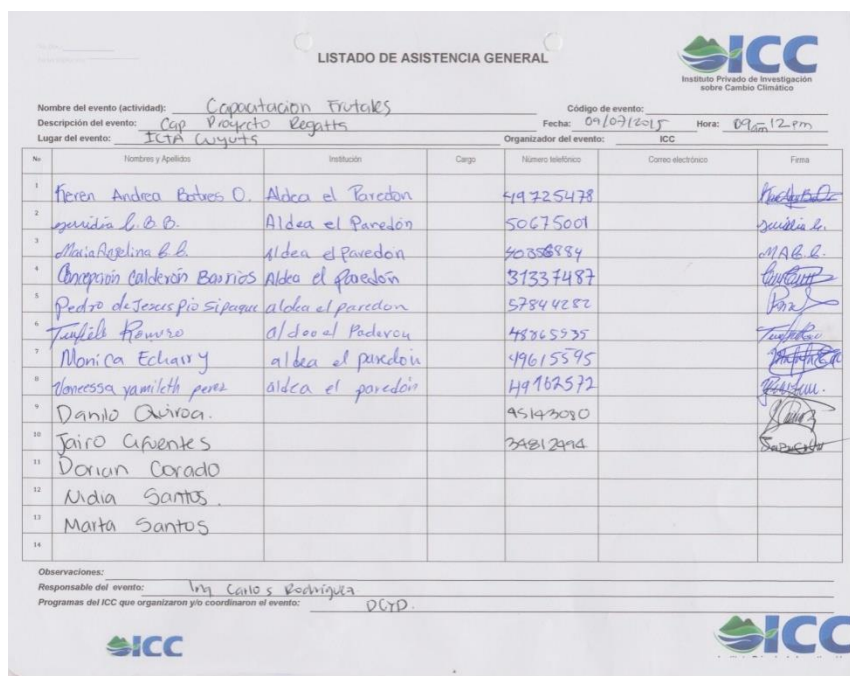 LISTADO DE ASISTENCIA GENERAL
ICC
Instituto Privado de Investigación
sobre Cambio Climático
Nombre del evento (actividad): Capacitacion Frutales Código de evento:
Descripción del evento: Cap Proyecto Regatta Fecha: 09/07/2015 Hora: 09am 12 pm
Lugar del evento: ICTA Cuyuta Organizador del evento: ICC
No Nombres y Apellidos Institución Cargo Número telefónico Correo electrónico Firma
1 Keren Andrea Botres O. Aldea el Paredon 49725478
2 B. B. Aldea el Paredón 50675001
3 Maria Angelina B. B. Aldea el Paredón
4 Concepción Calderón Barrios Aldea el paredón 31337487
5 Pedro de Jesus pio sipaque aldea el paredon 57844282
6 Romero 48865935
7 Monica Echarry aldea el paredón 49615595
8 Vaneessa yamileth perez aldea el paredón 49162572
9 Danilo Quiroa. 45143080
10 Jairo Cifuentes 34812494
11 Dorian Corado
12 Nidia Santos.
13 Marta Santos
14
Observaciones:
Responsable del evento: Ing Carlos Rodríguez
Programas del ICC que organizaron y/o coordinaron el evento: DCYD.
ICC
ICC